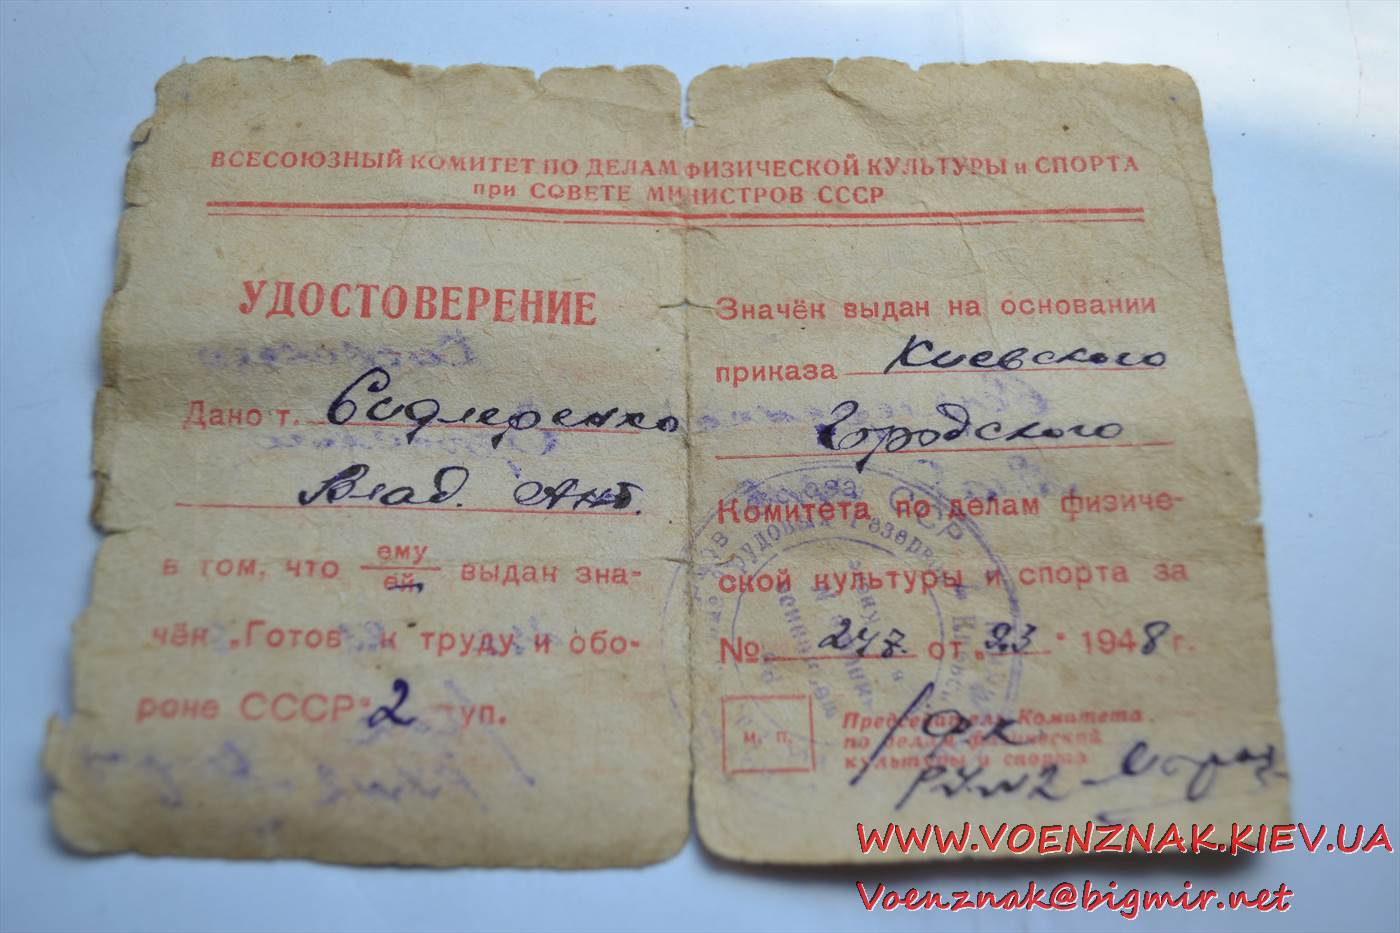 ВСЕСОЮЗНЫЙ КОМИТЕТ ПО ДЕЛАМ ФИЗИЧЕСКОЙ КУЛЬТУРЫ и СПОРТА
при СОВЕТЕ МИНИСТРОВ СССР
УДОСТОВЕРЕНИЕ
Дано т.
Влад. Ант.
в том, что ему
ей выдан зна-
чёк „Готов к труду и обо-
роне СССР" 2 туп.
Значёк выдан на основании
приказа Киевского
Городского
Комитета по делам физиче-
ской культуры и спорта за
№ 247 от „23" 1948 г.
м. п.
Председатель Комитета
по делам физической
культуры и спорта
РУ №2
СССР
WWW.VOENZNAK.KIEV.UA
Voenznak@bigmir.net